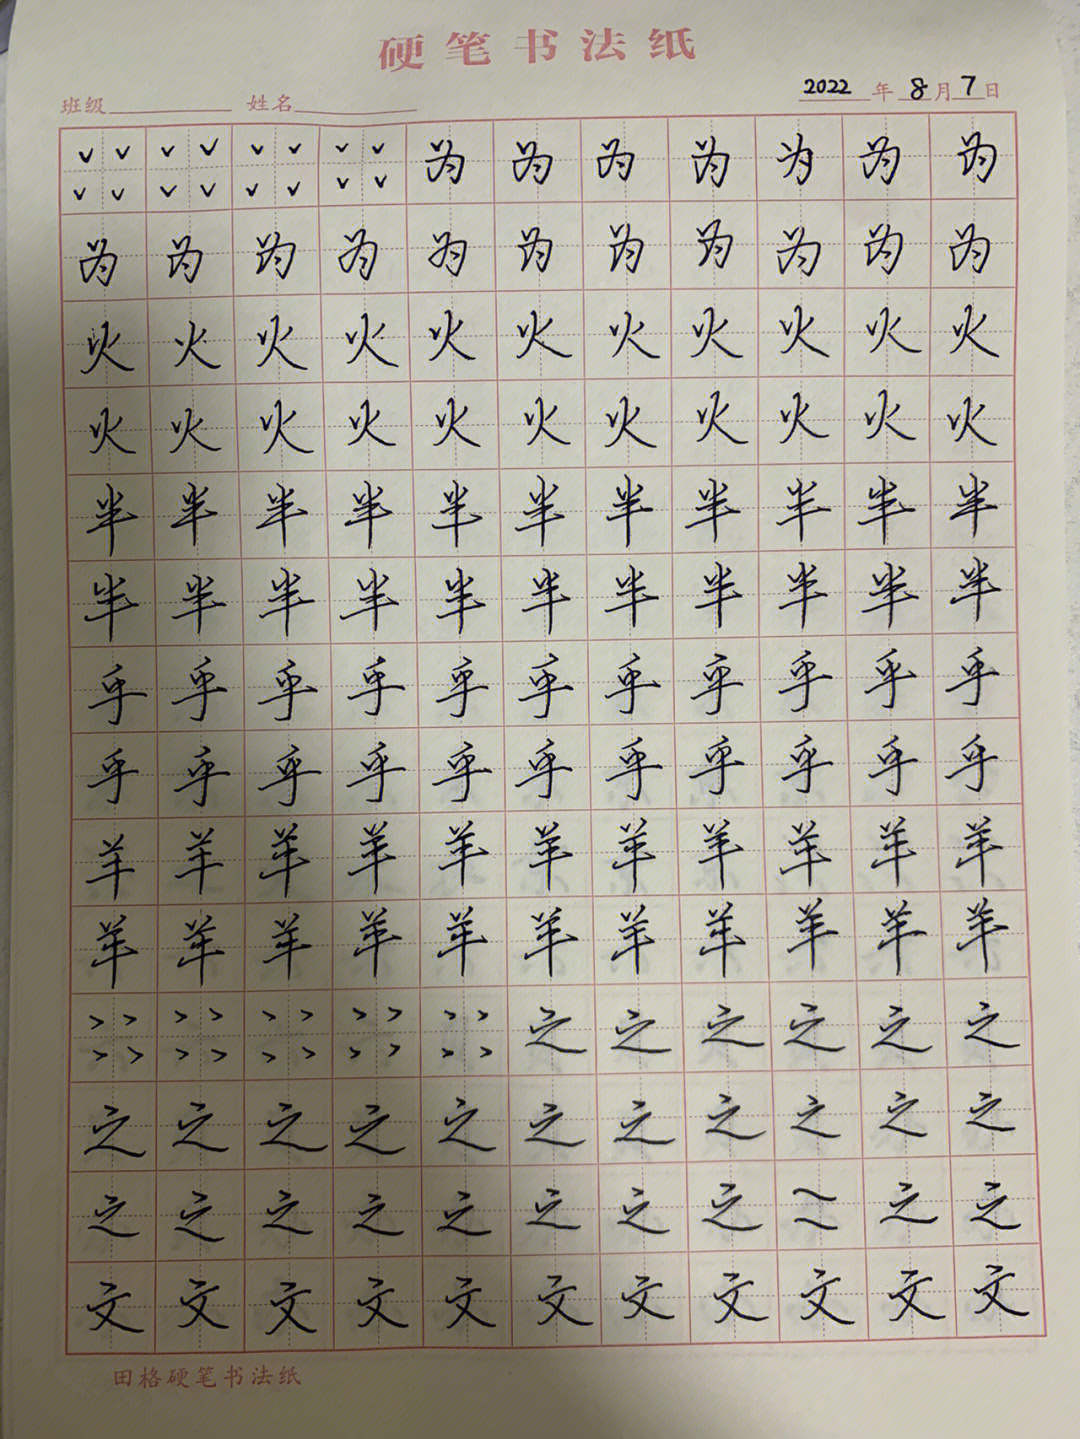 硬笔书法纸
班级 姓名 2022年8月7日
为为为为为为为
为为为为为为为为为为为
火火火火火火火火火火火
火火火火火火火火火火火
半半半半半半半半半半半
半半半半半半半半半半半
乎乎乎乎乎乎乎乎乎乎乎
乎乎乎乎乎乎乎乎乎乎乎
羊羊羊羊羊羊羊羊羊羊羊
羊羊羊羊羊羊羊羊羊羊羊
之之之之之之
之之之之之之之之之之之
之之之之之之之之之之
文文文文文文文文文文文
田格硬笔书法纸